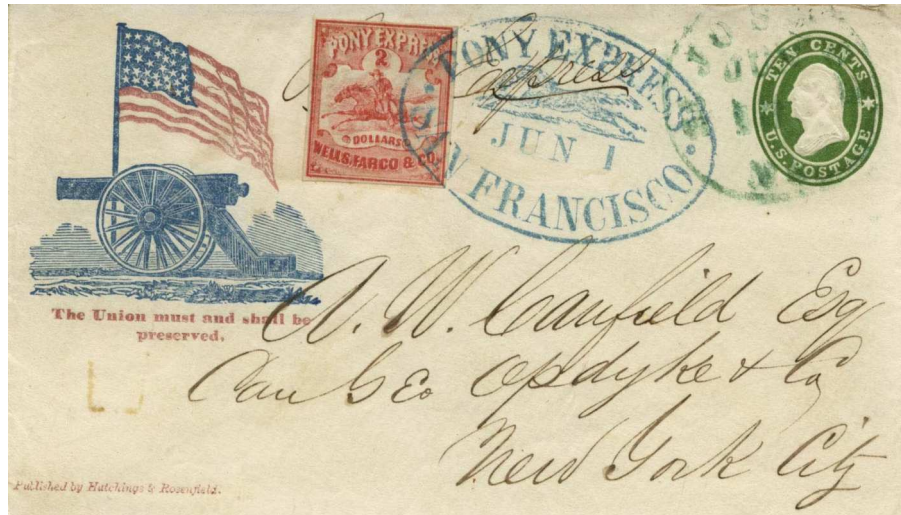 PONY EXPRESS
2
DOLLARS
WELLS, FARGO & CO.
PONY EXPRESS
JUN 1
SAN FRANCISCO
TEN CENTS
U.S. POSTAGE
express
The Union must and shall be
preserved.
A. W. Canfield Esq
Care Geo Opdyke & Co
New York City
Published by Hutchings & Rosenfield.